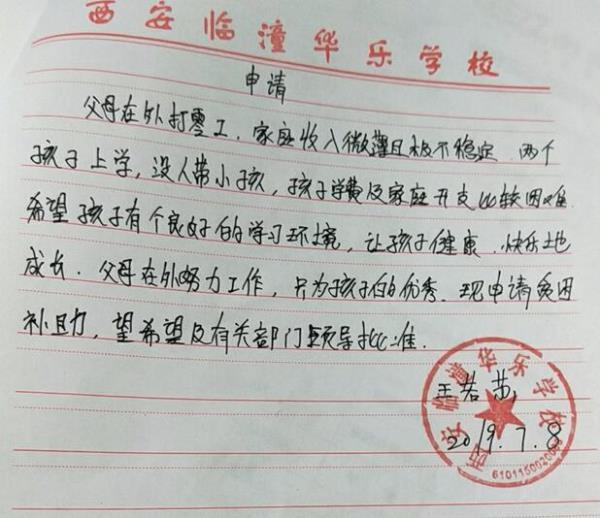 西安临潼华乐学校
申请
父母在外打零工，家庭收入微薄且极不稳定，两个
孩子上学，没人带小孩，孩子学费及家庭开支比较困难.
希望孩子有个良好的学习环境，让孩子健康、快乐地
成长．父母在外努力工作，只为孩子们的优秀．现申请贫困
补助，望希望及有关部门领导批准．
王若茜
2019.7.8
西安临潼华乐学校